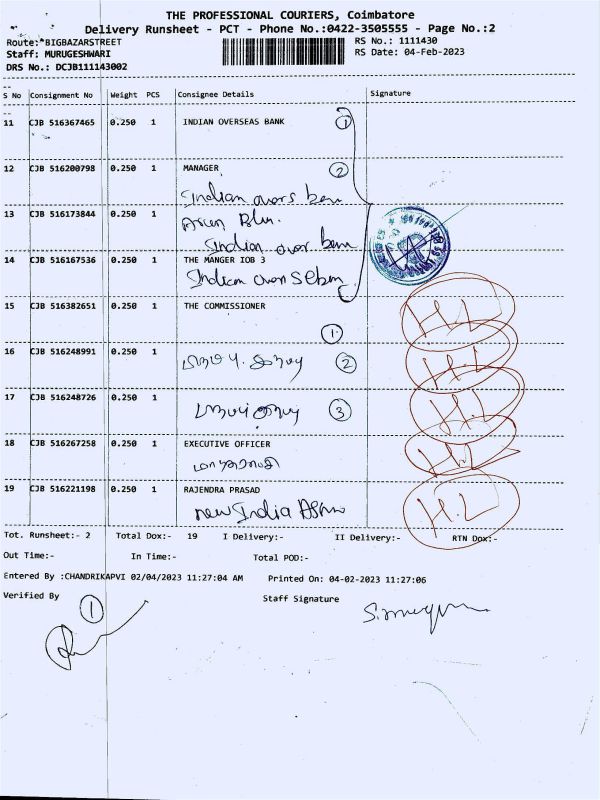 THE PROFESSIONAL COURIERS, Coimbatore
Delivery Runsheet - PCT - Phone No.:0422-3505555 - Page No.:2
Route:*BIGBAZARSTREET
RS No.: 1111430
Staff: MURUGESHWARI
RS Date: 04-Feb-2023
DRS No.: DCJB111143002
S No Consignment No Weight PCS Consignee Details Signature
11 CJB 516367465 0.250 1 INDIAN OVERSEAS BANK 1
12 CJB 516200798 0.250 1 MANAGER 2
Indian overs
13 CJB 516173844 0.250 1
Indian over
14 CJB 516167536 0.250 1 THE MANGER IOB 3
Indian overs
15 CJB 516382651 0.250 1 THE COMMISSIONER H.L
1
16 CJB 516248991 0.250 1 2 H.L
17 CJB 516248726 0.250 1 3 H.L
18 CJB 516267258 0.250 1 EXECUTIVE OFFICER H.L
19 CJB 516221198 0.250 1 RAJENDRA PRASAD H.L
new India
Tot. Runsheet:- 2 Total Dox:- 19 I Delivery:- II Delivery:- RTN Dox:-
Out Time:- In Time:- Total POD:-
Entered By :CHANDRIKAPVI 02/04/2023 11:27:04 AM Printed On: 04-02-2023 11:27:06
Verified By Staff Signature
1